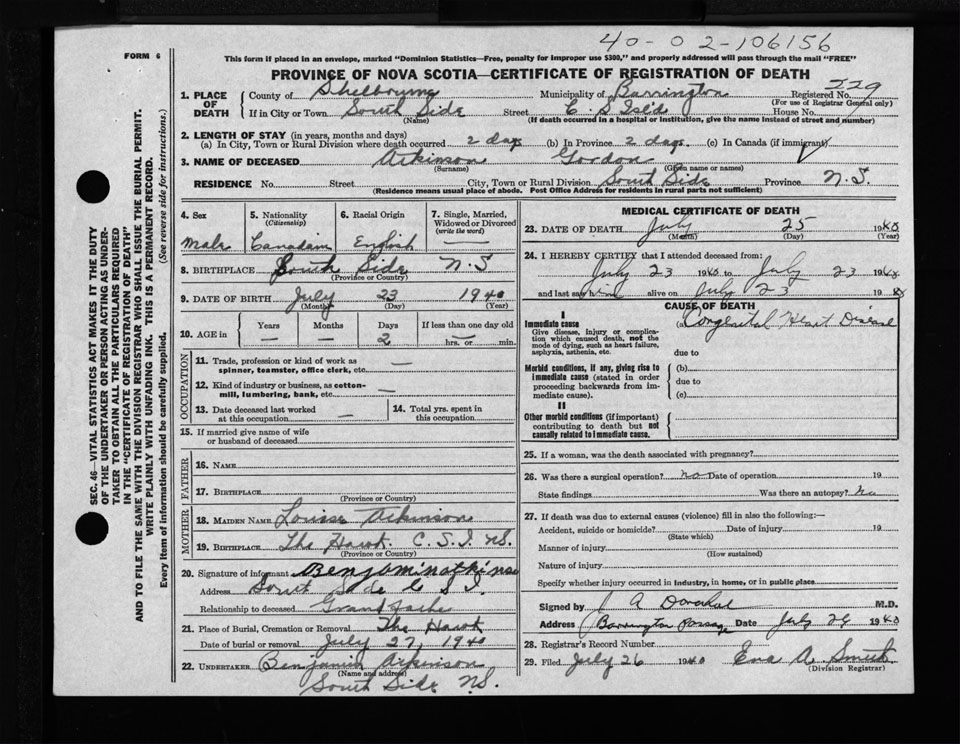 40-02-106156
FORM 6
This form if placed in an envelope, marked "Dominion Statistics—Free, penalty for improper use $300," and properly addressed will pass through the mail "FREE"
PROVINCE OF NOVA SCOTIA—CERTIFICATE OF REGISTRATION OF DEATH
1. PLACE OF DEATH
County of Shelburne Municipality of Barrington Registered No. 229
(For use of Registrar General only)
If in City or Town South Side Street C S Isld House No.
(Name) (If death occurred in a hospital or institution, give the name instead of street and number)
2. LENGTH OF STAY (in years, months and days)
(a) In City, Town or Rural Division where death occurred 2 days (b) In Province 2 days. (c) In Canada (if immigrant)
3. NAME OF DECEASED Atkinson Gordon
(Surname) (Given name or names)
RESIDENCE No. Street City, Town or Rural Division South Side Province N.S.
(Residence means usual place of abode. Post Office Address for residents in rural parts not sufficient)
4. Sex
Male
5. Nationality
(Citizenship)
Canadian
6. Racial Origin
English
7. Single, Married, Widowed or Divorced
(write the word)
—
8. BIRTHPLACE South Side N.S
(Province or Country)
9. DATE OF BIRTH July 23 1940
(Month) (Day) (Year)
10. AGE in
Years Months Days If less than one day old
— — 2 — hrs. or min.
OCCUPATION
11. Trade, profession or kind of work as
spinner, teamster, office clerk, etc. —
12. Kind of industry or business, as cotton-
mill, lumbering, bank, etc. —
13. Date deceased last worked
at this occupation —
14. Total yrs. spent in
this occupation
15. If married give name of wife
or husband of deceased
FATHER
16. NAME
17. BIRTHPLACE
(Province or Country)
MOTHER
18. MAIDEN NAME Louise Atkinson
19. BIRTHPLACE The Hawk. C. S. I. NS.
(Province or Country)
20. Signature of informant Benjamin atkinso
Address South Side C S I.
Relationship to deceased Grandfathe
21. Place of Burial, Cremation or Removal The Hawk
Date of burial or removal July 27, 1940
22. UNDERTAKER Benjamin Atkinson
(Name and address)
South Side N.S.
MEDICAL CERTIFICATE OF DEATH
23. DATE OF DEATH July 25 1940
(Month) (Day) (Year)
24. I HEREBY CERTIFY that I attended deceased from:
July 23 1940 to July 23 1940
and last saw him alive on July 23 19
CAUSE OF DEATH
I
Immediate cause (a) Congenital Heart Disease
Give disease, injury or complica-
tion which caused death, not the
mode of dying, such as heart failure,
asphyxia, asthenia, etc. due to
Morbid conditions, if any, giving rise to (b)
immediate cause (stated in order due to
proceeding backwards from im-
mediate cause). (c)
II
Other morbid conditions (if important)
contributing to death but not
causally related to immediate cause.
25. If a woman, was the death associated with pregnancy?
26. Was there a surgical operation? no Date of operation 19
State findings Was there an autopsy? no
27. If death was due to external causes (violence) fill in also the following:—
Accident, suicide or homicide? Date of injury 19
(State which)
Manner of injury
(How sustained)
Nature of injury
Specify whether injury occurred in industry, in home, or in public place
Signed by J A M.D.
Address Barrington Passage Date July 26 1940
28. Registrar's Record Number
29. Filed July 26 1940 Eva A. Smith
(Division Registrar)
SEC. 46—VITAL STATISTICS ACT MAKES IT THE DUTY
OF THE UNDERTAKER OR PERSON ACTING AS UNDER-
TAKER TO OBTAIN ALL THE PARTICULARS REQUIRED
IN THE "CERTIFICATE OF REGISTRATION OF DEATH"
AND TO FILE THE SAME WITH THE DIVISION REGISTRAR WHO SHALL ISSUE THE BURIAL PERMIT.
WRITE PLAINLY WITH UNFADING INK. THIS IS A PERMANENT RECORD.
Every item of information should be carefully supplied. (See reverse side for instructions.)